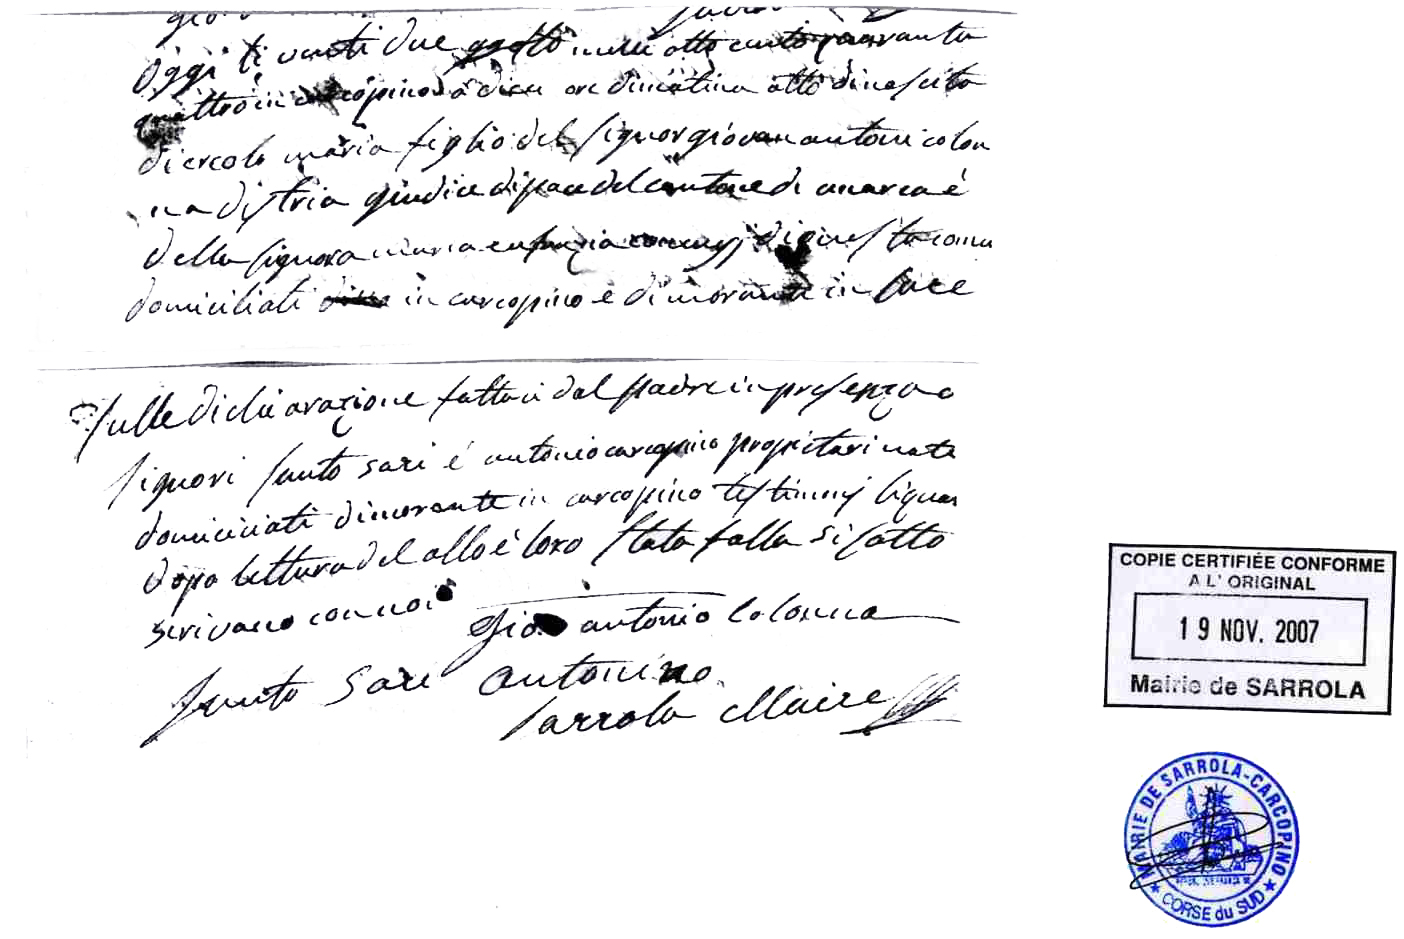 oggi li venti due agosto mille otto cento quaranta
quattro in carcopino a dieci ore di matina atto di nascita
di ercole maria figlio del signor giovan antoni colon
na d'istria giudice di pace del cantone di
della signora maria di questa comu
domiciliati in carcopino e dimorante in
sulle dichiarazione fattaci dal padre in presenza
signori santo sari é antonio carcopino propietari nati
domiciliati dimorante in carcopino testimonj liquai
dopo lettura del atto é loro stata fatta si sotto
scrivano con noi
Gio antonio Colonna
santo sari antonino
sarrola Maire
COPIE CERTIFIÉE CONFORME
A L' ORIGINAL
19 NOV. 2007
Mairie de SARROLA
MAIRIE DE SARROLA-CARCOPINO
★ CORSE du SUD ★